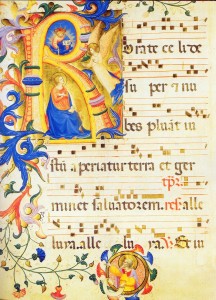 Rorate ce li de
su per & nu
bes pluāt iu
stū aperiatur terra et ger
minet saluatorem. alle
luya. alle lu ya. Et iu